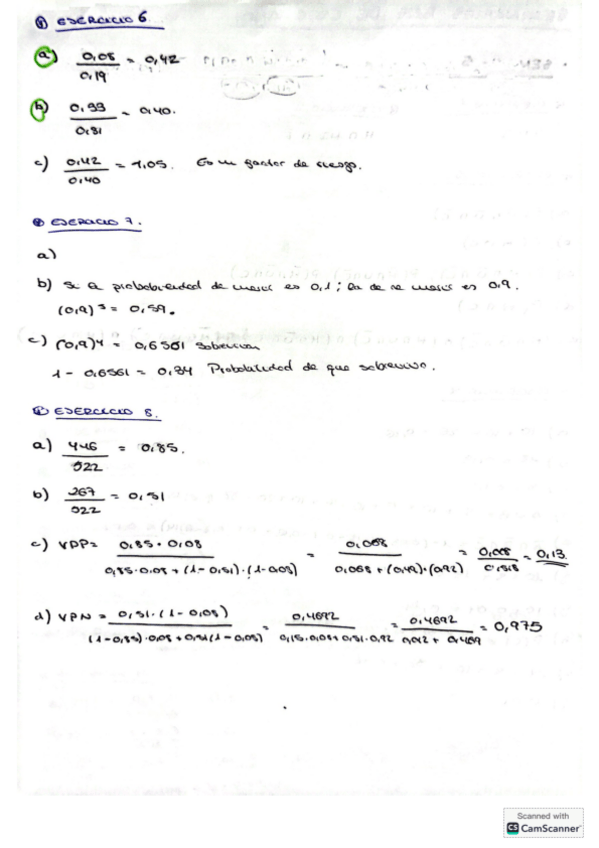 EJERCICIO 6
a) 0,08 / 0,19 = 0,42
b) 0,33 / 0,81 = 0,40.
c) 0,42 / 0,40 = 1,05. Es un factor de riesgo.
EJERCICIO 7.
a)
b) Si la probabilidad de morir es 0,1; la de no morir es 0,9.
(0,9)⁵ = 0,59.
c) (0,9)⁴ = 0,6561 sobreviven
1 - 0,6561 = 0,34 Probabilidad de que sobreviva.
EJERCICIO 8.
a) 446 / 522 = 0,85.
b) 267 / 522 = 0,51
c) VPP = 0,85 · 0,08 / 0,85 · 0,08 + (1 - 0,51) · (1 - 0,08) = 0,068 / 0,068 + (0,49) · (0,92) = 0,068 / 0,518 = 0,13
d) VPN = 0,51 · (1 - 0,08) / (1 - 0,85) · 0,08 + 0,51 (1 - 0,08) = 0,4692 / 0,15 · 0,08 + 0,51 · 0,92 = 0,4692 / 0,012 + 0,469 = 0,975
Scanned with
CS CamScanner